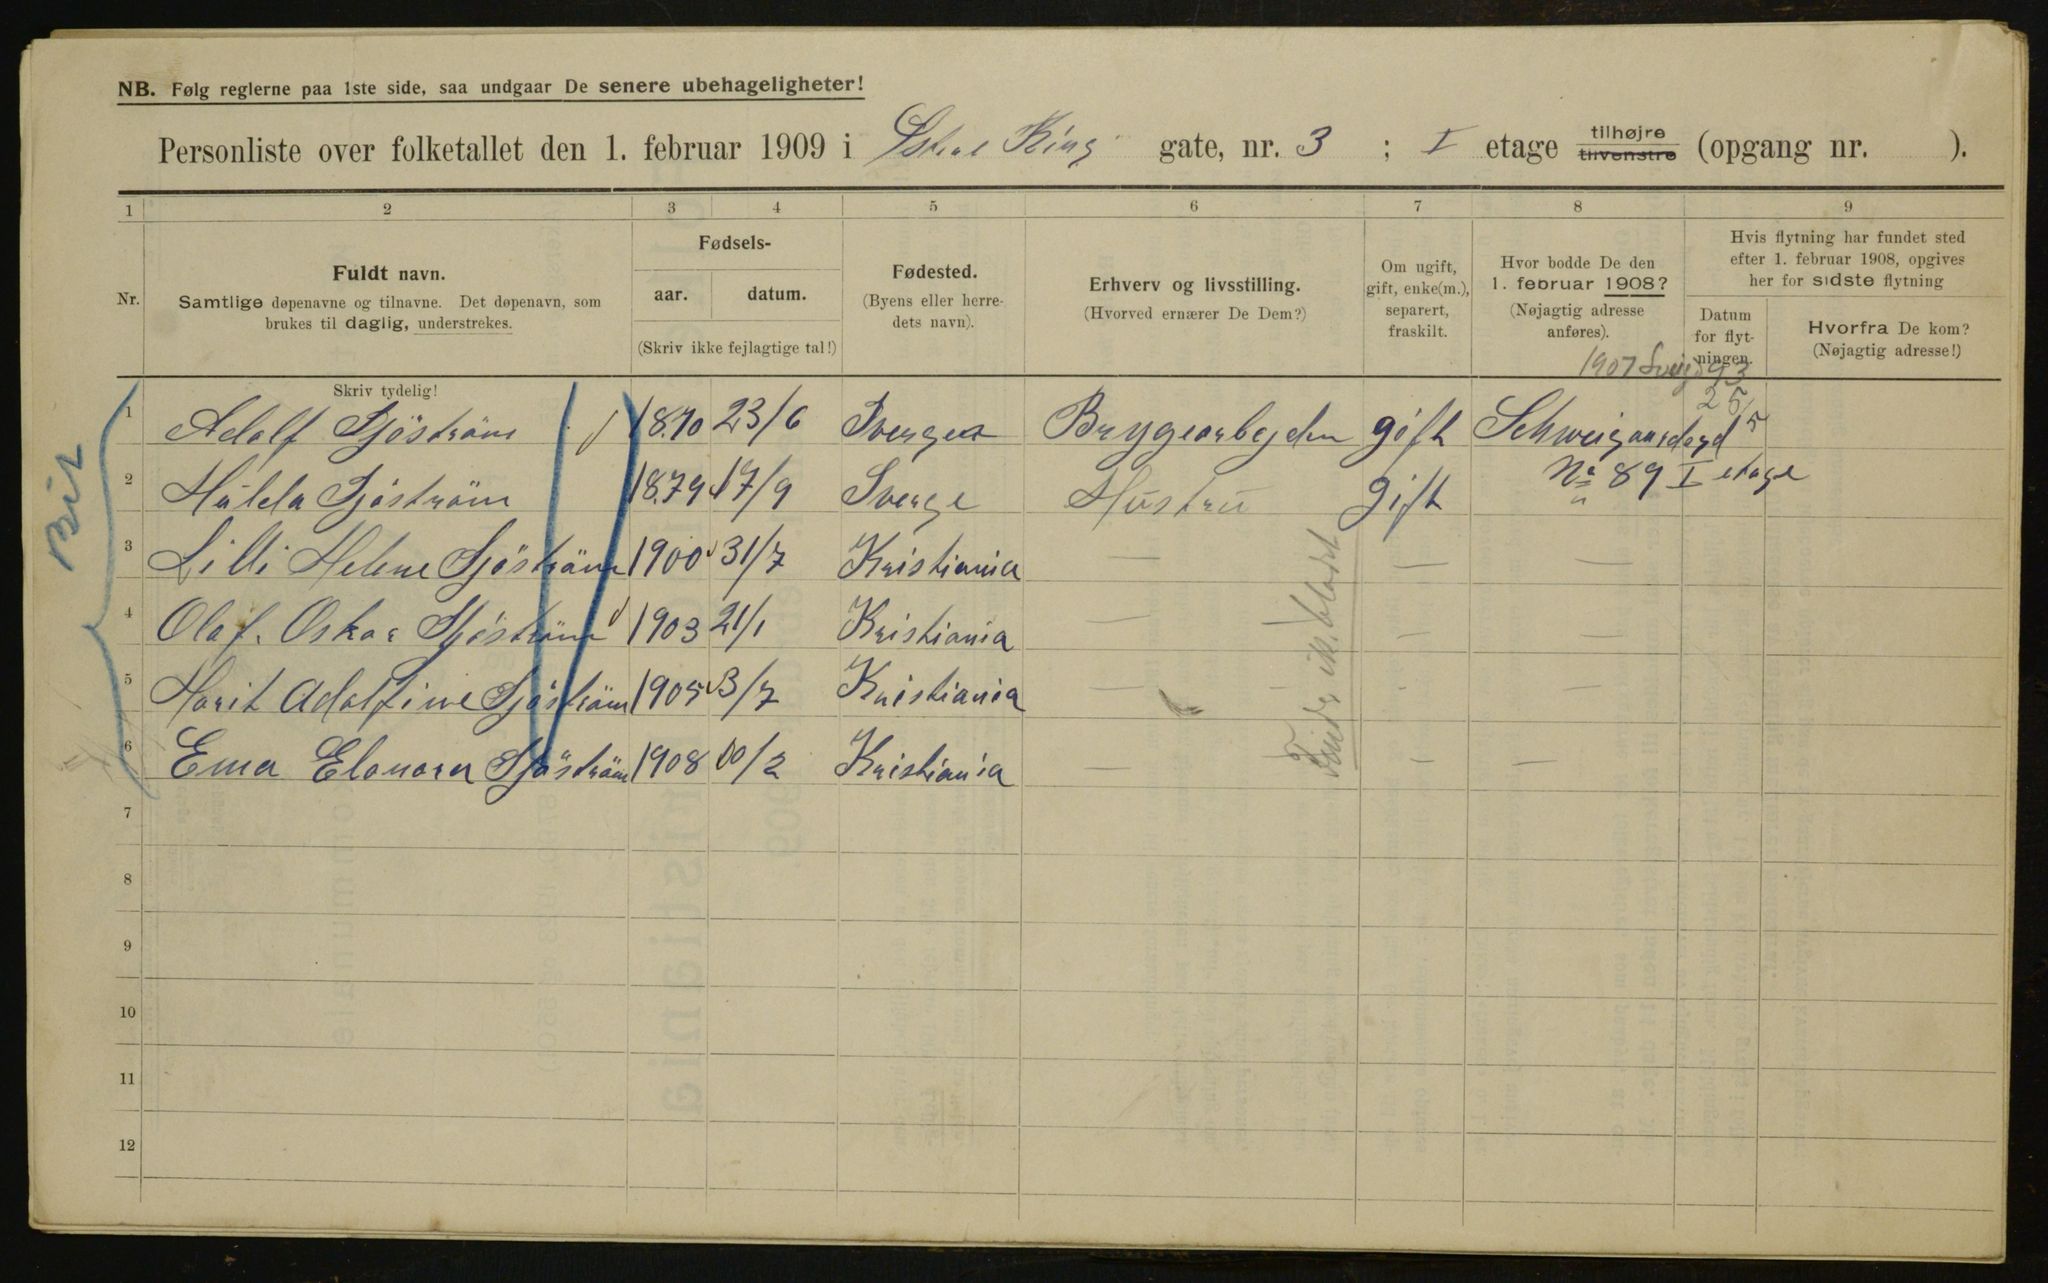 NB. Følg reglerne paa 1ste side, saa undgaar De senere ubehageligheter!
Personliste over folketallet den 1. februar 1909 i Ring gate, nr. 3 ; I etage tilhøjre tilvenstre (opgang nr. ).
1 2 3 4 5 6 7 8 9
Nr.
Fuldt navn.
Samtlige døpenavne og tilnavne. Det døpenavn, som
brukes til daglig, understrekes.
Fødsels-
aar. datum.
(Skriv ikke fejlagtige tal!)
Fødested.
(Byens eller herre-
dets navn).
Erhverv og livsstilling.
(Hvorved ernærer De Dem?)
Om ugift,
gift, enke(m.),
separert,
fraskilt.
Hvor bodde De den
1. februar 1908?
(Nøjagtig adresse
anføres).
Hvis flytning har fundet sted
efter 1. februar 1908, opgives
her for sidste flytning
Datum
for flyt-
ningen.
Hvorfra De kom?
(Nøjagtig adresse!)
1907 93
Skriv tydelig!
25/5
1 Adolf Sjöström 1870 23/6 Sverge Bryggearbejder gift Schweigaardsgd
2 Hulda Sjöström 1879 17/9 Sverge Hustru gift No 89 I etage
3 Lilli Helene Sjöström 1900 31/7 Kristiania — — —
4 Olaf. Oskar Sjöström 1903 21/1 Kristiania — — — —
5 Marit Adolfine Sjöström 1905 3/7 Kristiania — — - —
6 Ema Elonora Sjöström 1908 10/2 Kristiania — — —
7
8
9
10
11
12